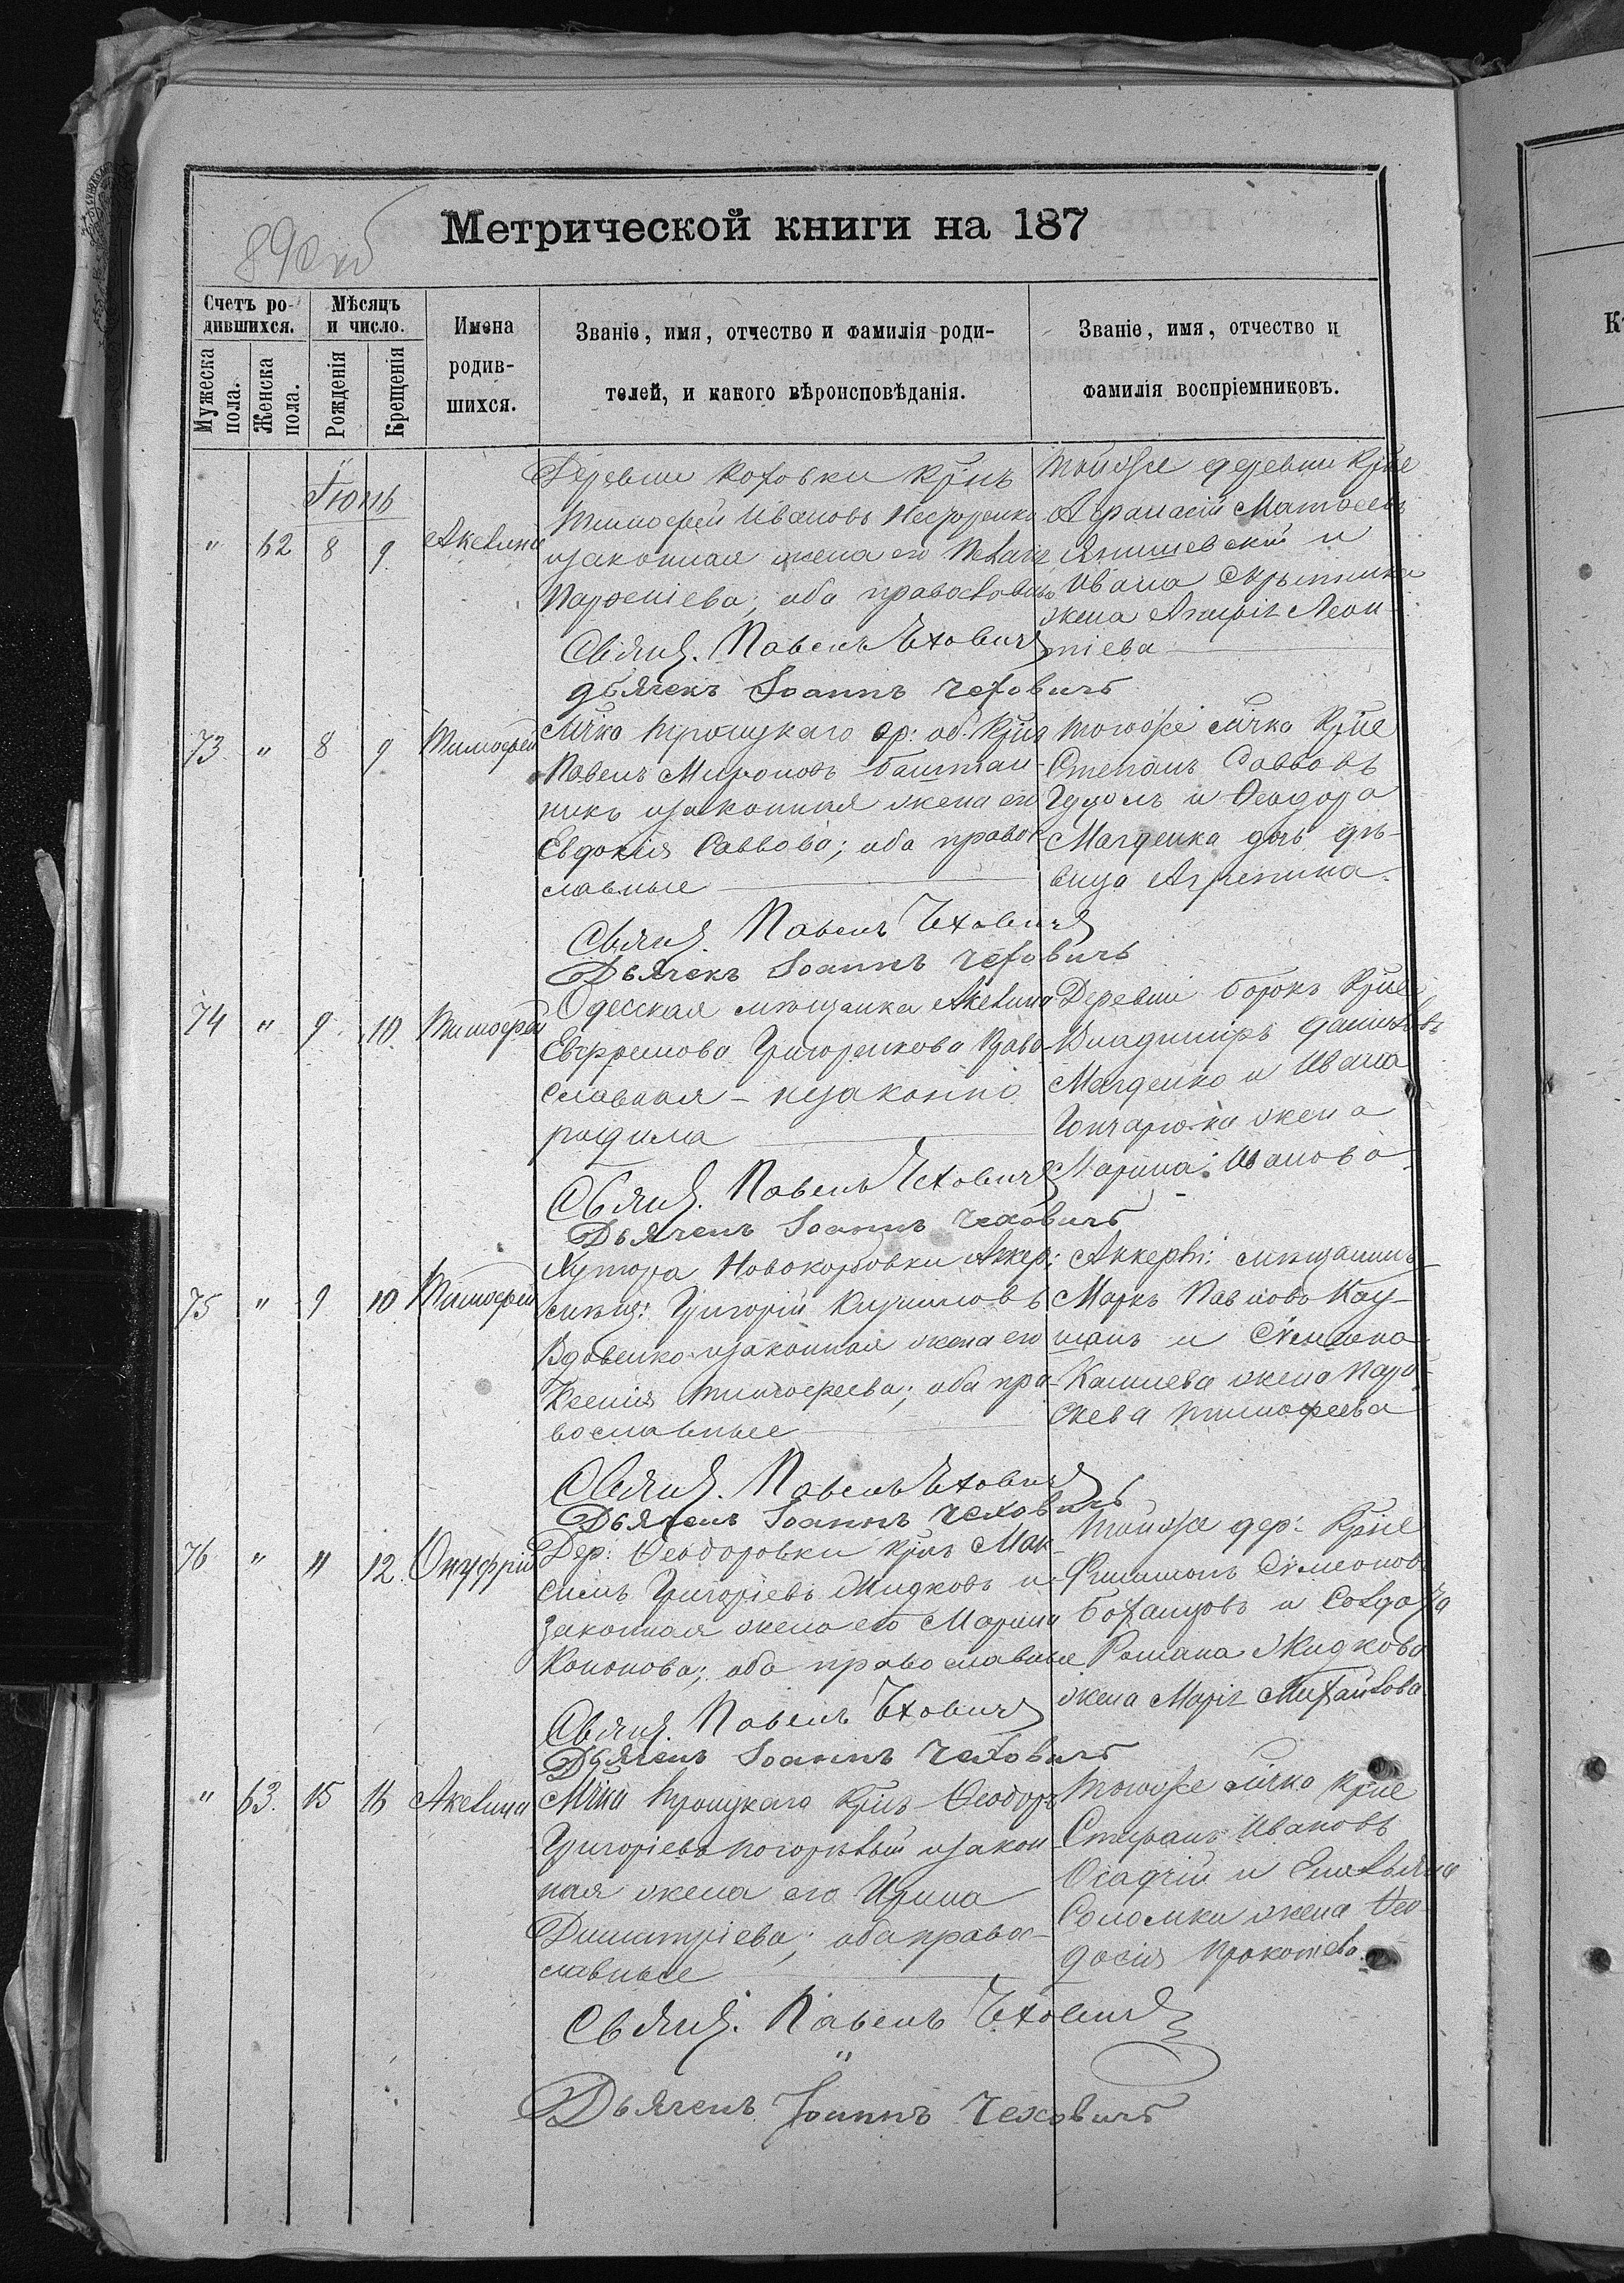 890 об
Метрической книги на 187
Счетъ ро-
дившихся.
Мѣсяцъ
и число.
Имена
родив-
шихся.
Званіе, имя, отчество и фамилія роди-
телей, и какого вѣроисповѣданія.
Званіе, имя, отчество и
фамилія воспріемниковъ.
Мужеска
пола.
Женска
пола.
Рожденія
Крещенія
Іюнь
" 62 8 9 Акелина
Деревни Котовки
Тимофей Ивановъ Несторенко
изаконная жена его Пелагія
Парфеніева; оба православные
Свящ. Павелъ Чеховичъ
дьячекъ Іоаннъ Чеховичъ
Тойже деревни
Афанасій
Янишевскій и
Ивана Скрыпника
жена Агафія Леон-
тіева
73 " 8 9 Тимофей
Мѣчка Троицкаго
Павелъ Мироновъ Баштан-
никъ изаконная жена его
Евдокія Саввова; оба право-
славные
Свящ. Павелъ Чеховичъ
Дьячекъ Іоаннъ Чеховичъ
Тогоже мѣчка
Степанъ Савовъ
и Ѳеодора
Магденка дочь дѣ-
вица Агрепина.
74 " 9 10 Тимофей
Одесская мѣщанка Акелина
Евфремова Григоренкова Право-
славная - незаконно
родила
Свящ. Павелъ Чеховичъ
Дьячекъ Іоаннъ Чеховичъ
Деревни
Владимиръ Даниловъ
Магденко и Ивана
Гончарюка жена
Марина Иванова
75 " 9 10 Тимофей
Хутора Аккер:
мѣщ: Григорій Кириловъ
Вдовенко изаконная жена его
Ксенія Тимофеева; оба пра-
вославные
Свящ. Павелъ Чеховичъ
Дьячекъ Іоаннъ Чеховичъ
Аккерм: мѣщанинъ
Маркъ Павловъ Кау-
шанъ и Симеона
жена Пара-
скева Тимофеева
76 " " 12 Онуфрій
Дер: Ѳеодоровки Мак-
симъ Григоріевъ Жидковъ и
законная жена его Марина
Кононова; оба православные
Свящ. Павелъ Чеховичъ
Дьячекъ Іоаннъ Чеховичъ
Тойже дер:
Филимонъ Симеоновъ
и Солдата
Романа Жидкова
жена Марія Михайлова
" 63. 15 16 Акелина
Мѣчка Троицкаго Ѳеодоръ
Григоріевъ Погорѣлый изакон
ная жена его Ирина
Димитріева; оба право-
славные
Свящ. Павелъ Чеховичъ
Дьячекъ Іоаннъ Чеховичъ
Тогоже мѣчка
Стефанъ Ивановъ
Осадчій и Емельяна
Соломки жена Ѳео-
досія Прокопіева.